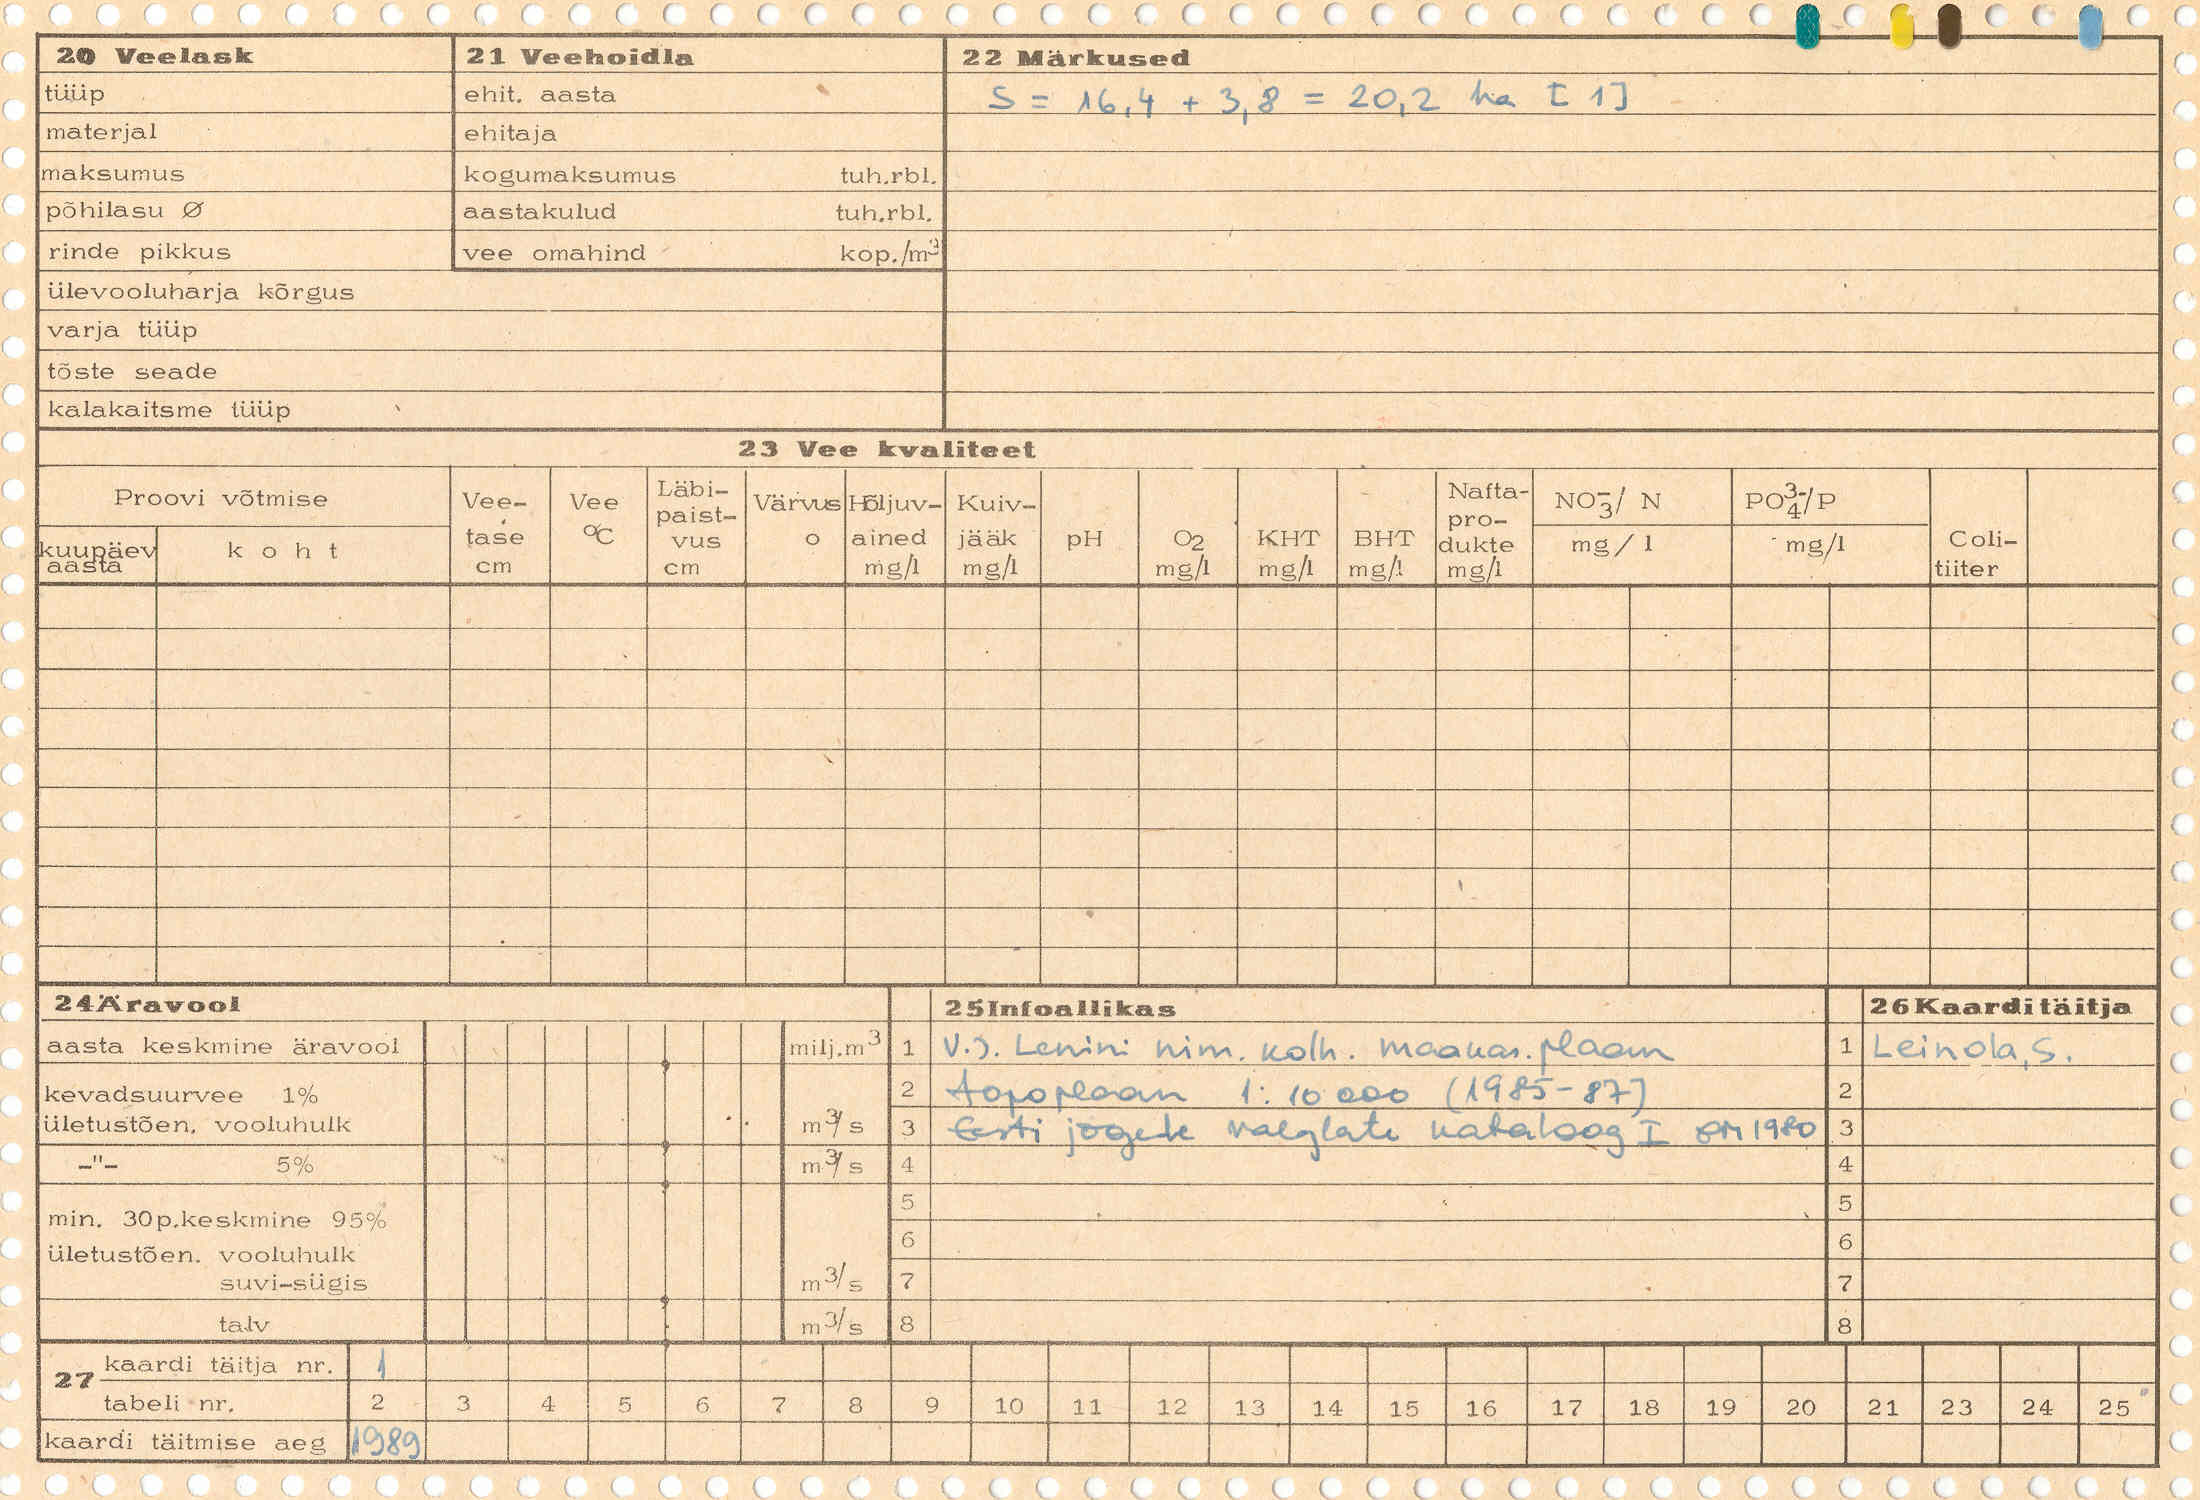 20 Veelask
tüüp
materjal
maksumus
põhilasu Ø
rinde pikkus
ülevooluharja kõrgus
varja tüüp
tõste seade
kalakaitsme tüüp
21 Veehoidla
ehit. aasta
ehitaja
kogumaksumus tuh.rbl.
aastakulud tuh.rbl.
vee omahind kop./m³
22 Märkused
S = 16,4 + 3,8 = 20,2 ha [1]
23 Vee kvaliteet
Proovi võtmise
kuupäev aasta
koht
Vee-
tase
cm
Vee
°C
Läbi-
paist-
vus
cm
Värvus
o
Hõljuv-
ained
mg/l
Kuiv-
jääk
mg/l
pH
O2
mg/l
KHT
mg/l
BHT
mg/l
Nafta-
pro-
dukte
mg/l
NO₃⁻/ N
mg/l
PO₄³⁻/P
mg/l
Coli-
tiiter
24 Äravool
aasta keskmine äravool milj.m³
kevadsuurvee 1%
ületustõen. vooluhulk m³/s
-"- 5% m³/s
min. 30p.keskmine 95%
ületustõen. vooluhulk
suvi-sügis m³/s
talv m³/s
25 Infoallikas
1 V.I. Lenini nim. kolh. maakas. plaan
2 Topoplaan 1:10 000 (1985-87)
3 Eesti jõgede valglate kataloog I EM 1980
4
5
6
7
8
26 Kaarditäitja
1 Leinola, S.
2
3
4
5
6
7
8
27 kaardi täitja nr. 1
tabeli nr. 2 3 4 5 6 7 8 9 10 11 12 13 14 15 16 17 18 19 20 21 23 24 25
kaardi täitmise aeg 1989